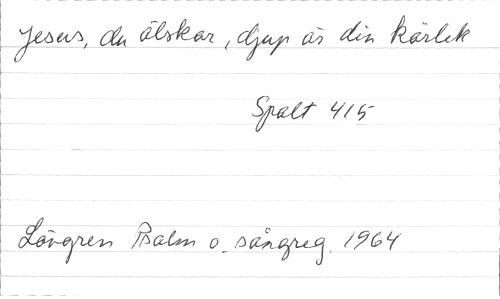 Jesus, du älskar, djup är din kärlek
Spalt 415
Lövgren Psalm o. sångreg. 1964